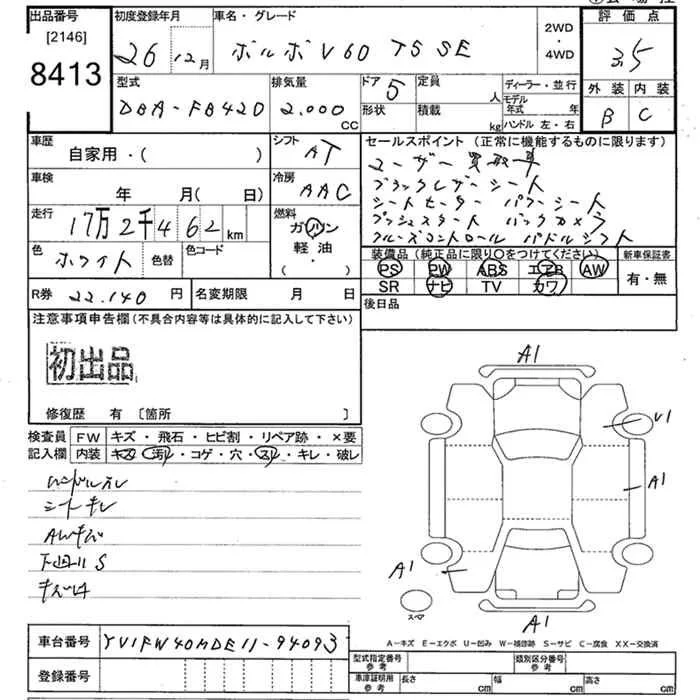 出品番号
[2146]
8413
初度登録年月
26 12月
車名・グレード
ボルボV60 T5 SE
2WD
・
4WD
評価点
3.5
外装 内装
B C
型式
DBA-FB420
排気量
2.000
CC
ドア 5
形状
定員
人
積載
kg
ディーラー・並行
モデル年式 年
ハンドル 左・右
車歴
自家用・( )
シフト
AT
車検
年 月( 日)
冷房
AAC
走行
17万2千462km
燃料
ガソリン
軽油
( ・ )
色
ホワイト
色替
色コード
R券 22.140 円
名変期限 月 日
セールスポイント(正常に機能するものに限ります)
ユーザー買取車
ブラックレザーシート
シートヒーター パワーシート
プッシュスタート バックカメラ
クルーズコントロール パドルシフト
装備品(純正品に限り○をつけてください)
新車保証書
PS PW ABS エアB AW
有・無
SR ナビ TV カワ
後日品
注意事項申告欄(不具合内容等は具体的に記入して下さい)
初出品
修復歴 有〔箇所 〕
検査員記入欄
FW キズ・飛石・ヒビ割・リペア跡・×要
内装 キズ・汚レ・コゲ・穴・スレ・キレ・破レ
ハンドルスレ
シートキレ
AWキズ
下回りS
A1
V1
A1
A1
A1
スペア
A-キズ E-エクボ U-凹み W-補修跡 S-サビ C-腐食 XX-交換済
車台番号 YV1FW40MDE11-94093
登録番号
型式指定番号
参考
類別区分番号
参考
車庫証明用
参考
長さ cm
幅 cm
高さ cm